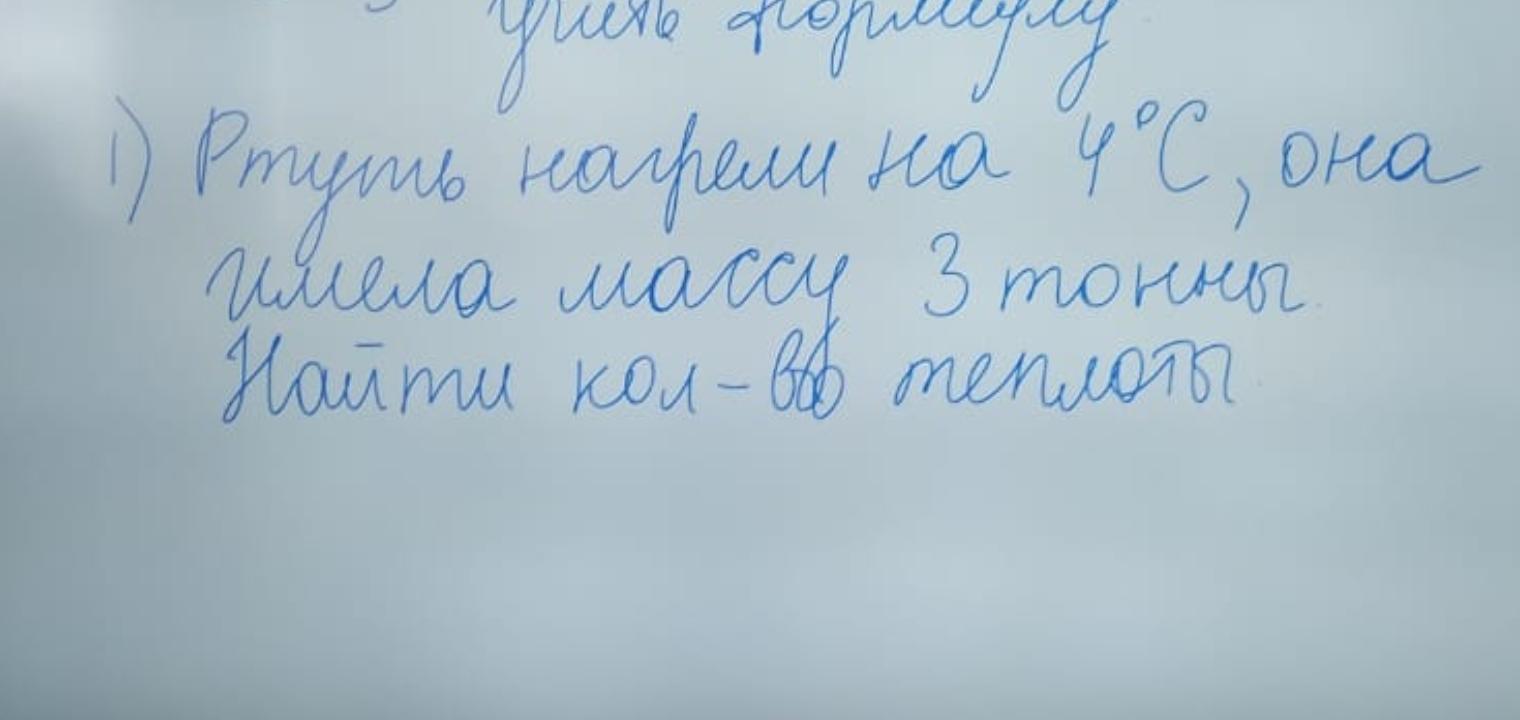 учить формулу
1) Ртуть нагрели на 4°C, она
имела массу 3 тонны.
Найти кол-во теплоты